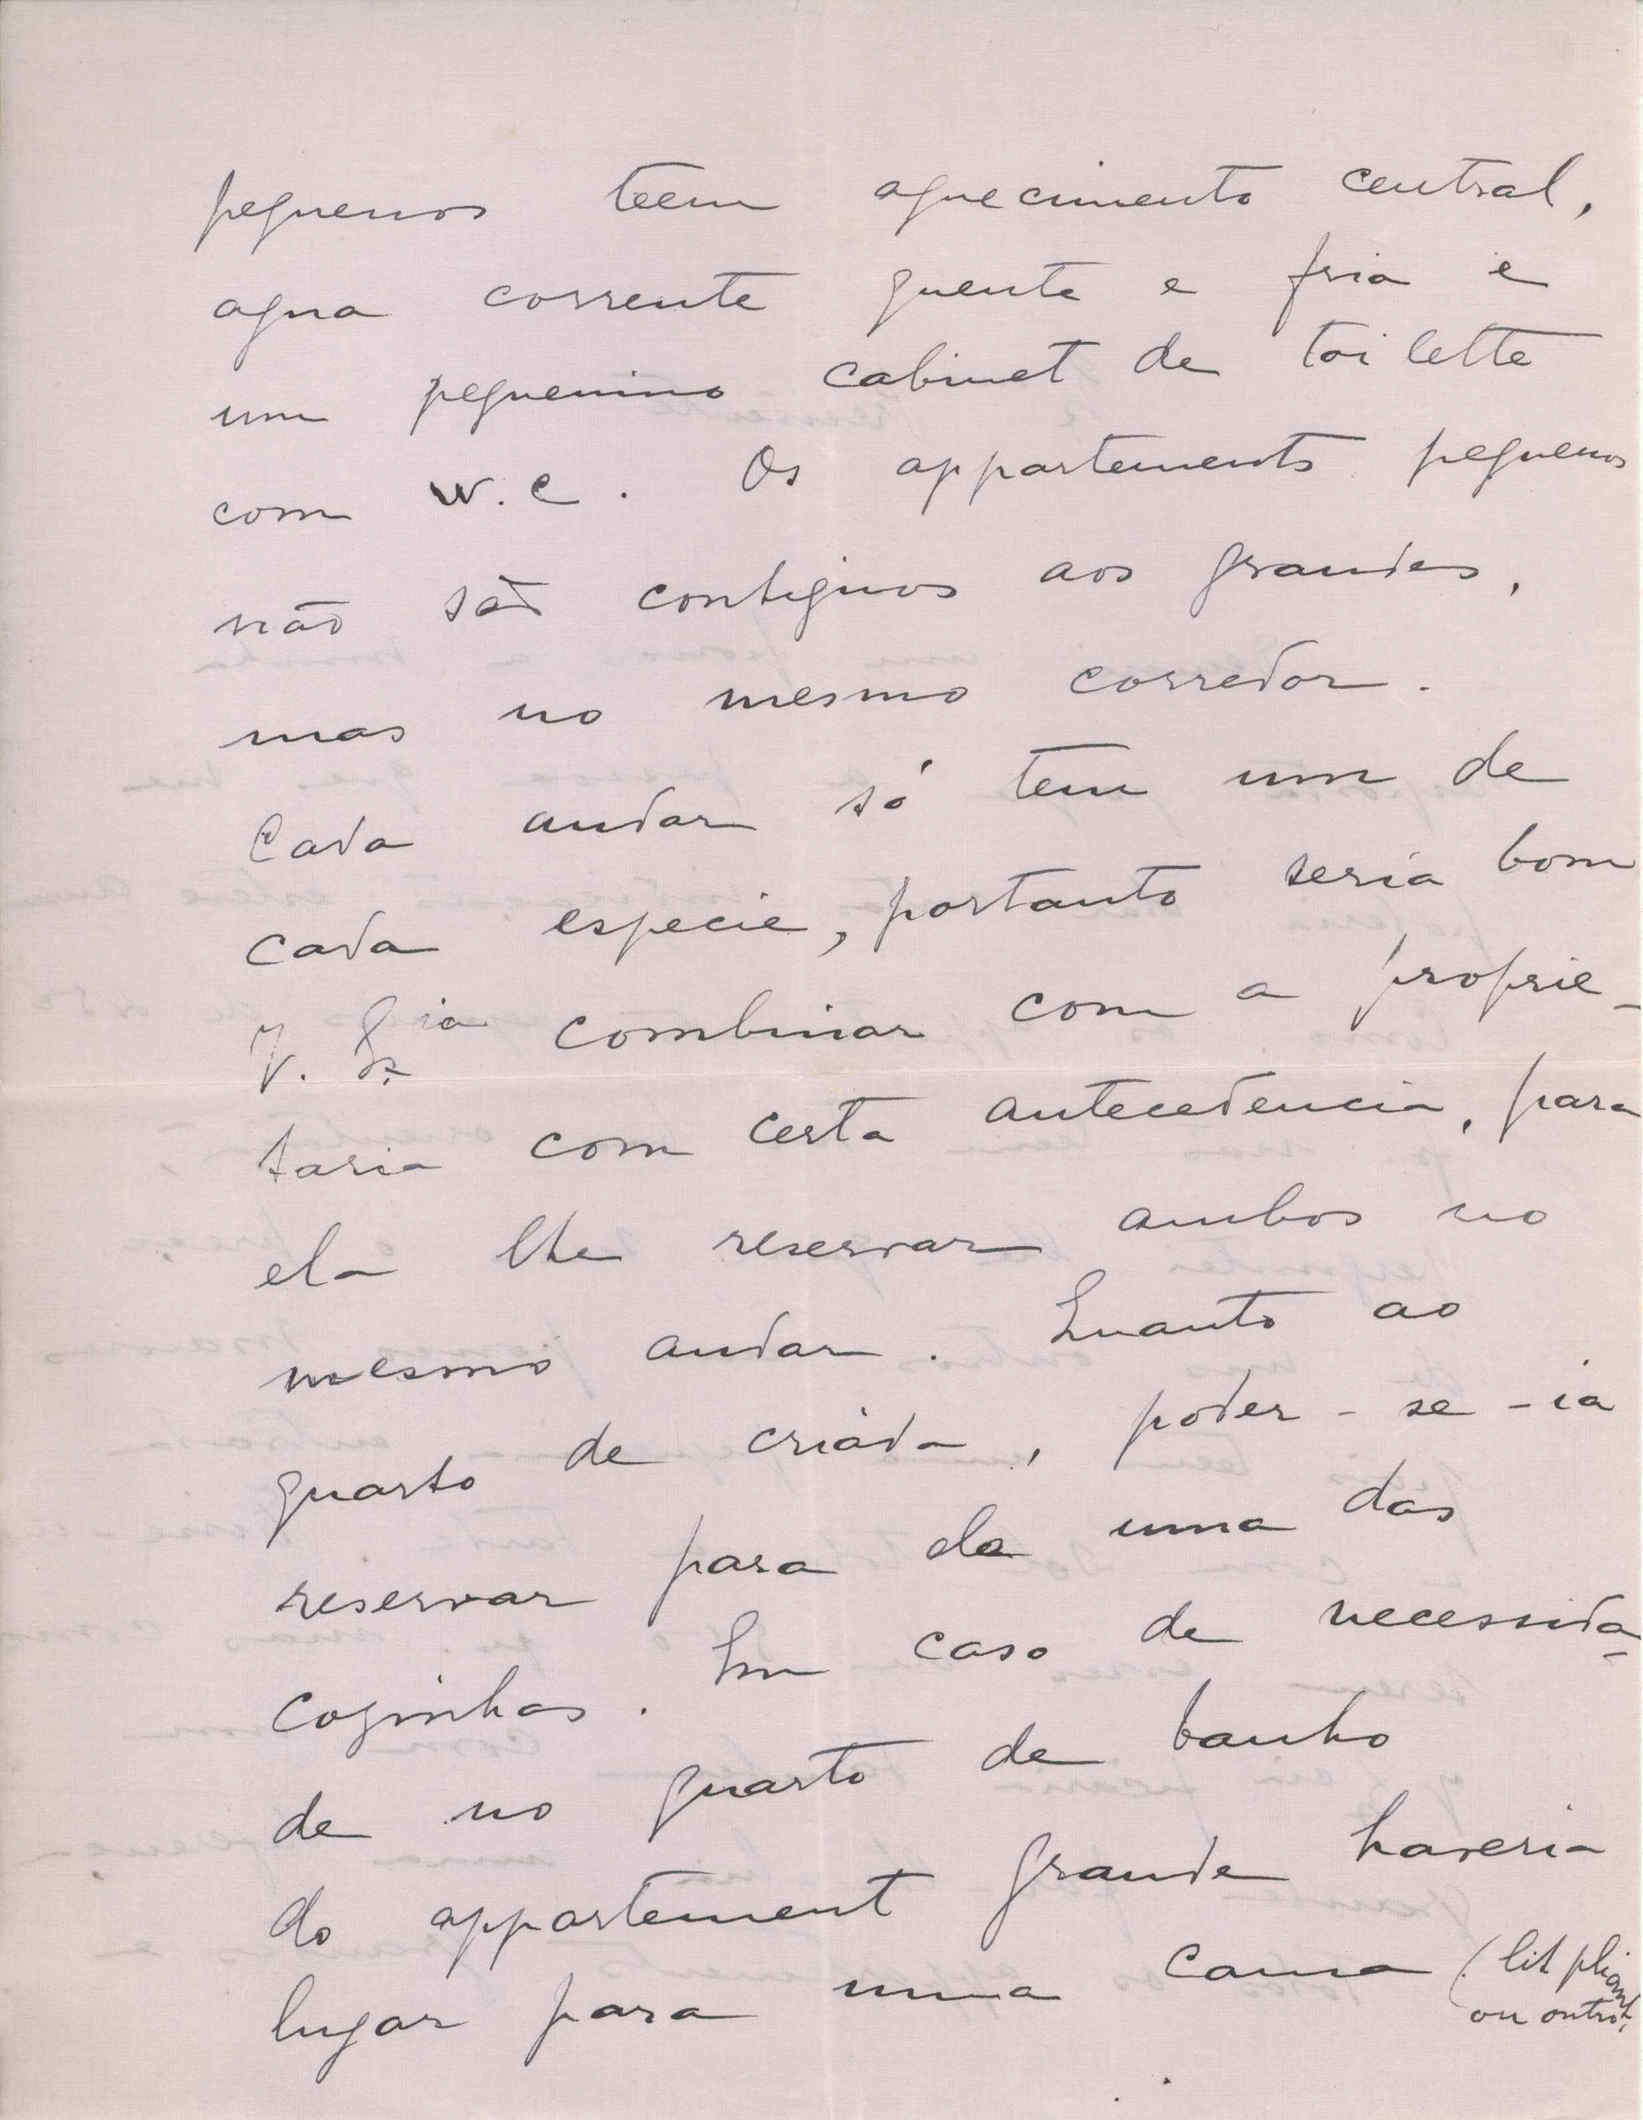 pequenos teem aquecimento central,
agua corrente quente e fria e
um pequenino cabinet de toilette
com W.C. Os appartements pequenos
não são contiguos aos grandes,
mas no mesmo corredor.
Cada andar só tem um de
cada especie, portanto seria bom
V. Ex.ia combinar com a proprie-
taria com certa antecedencia, para
ela lhe reservar ambos no
mesmo andar. Quanto ao
quarto de criáda, poder-se-ia
reservar para ela uma das
cozinhas. Em caso de necessida-
de no quarto de banho
do appartement grande haveria
lugar para uma cama (lit pliant,
ou outro,